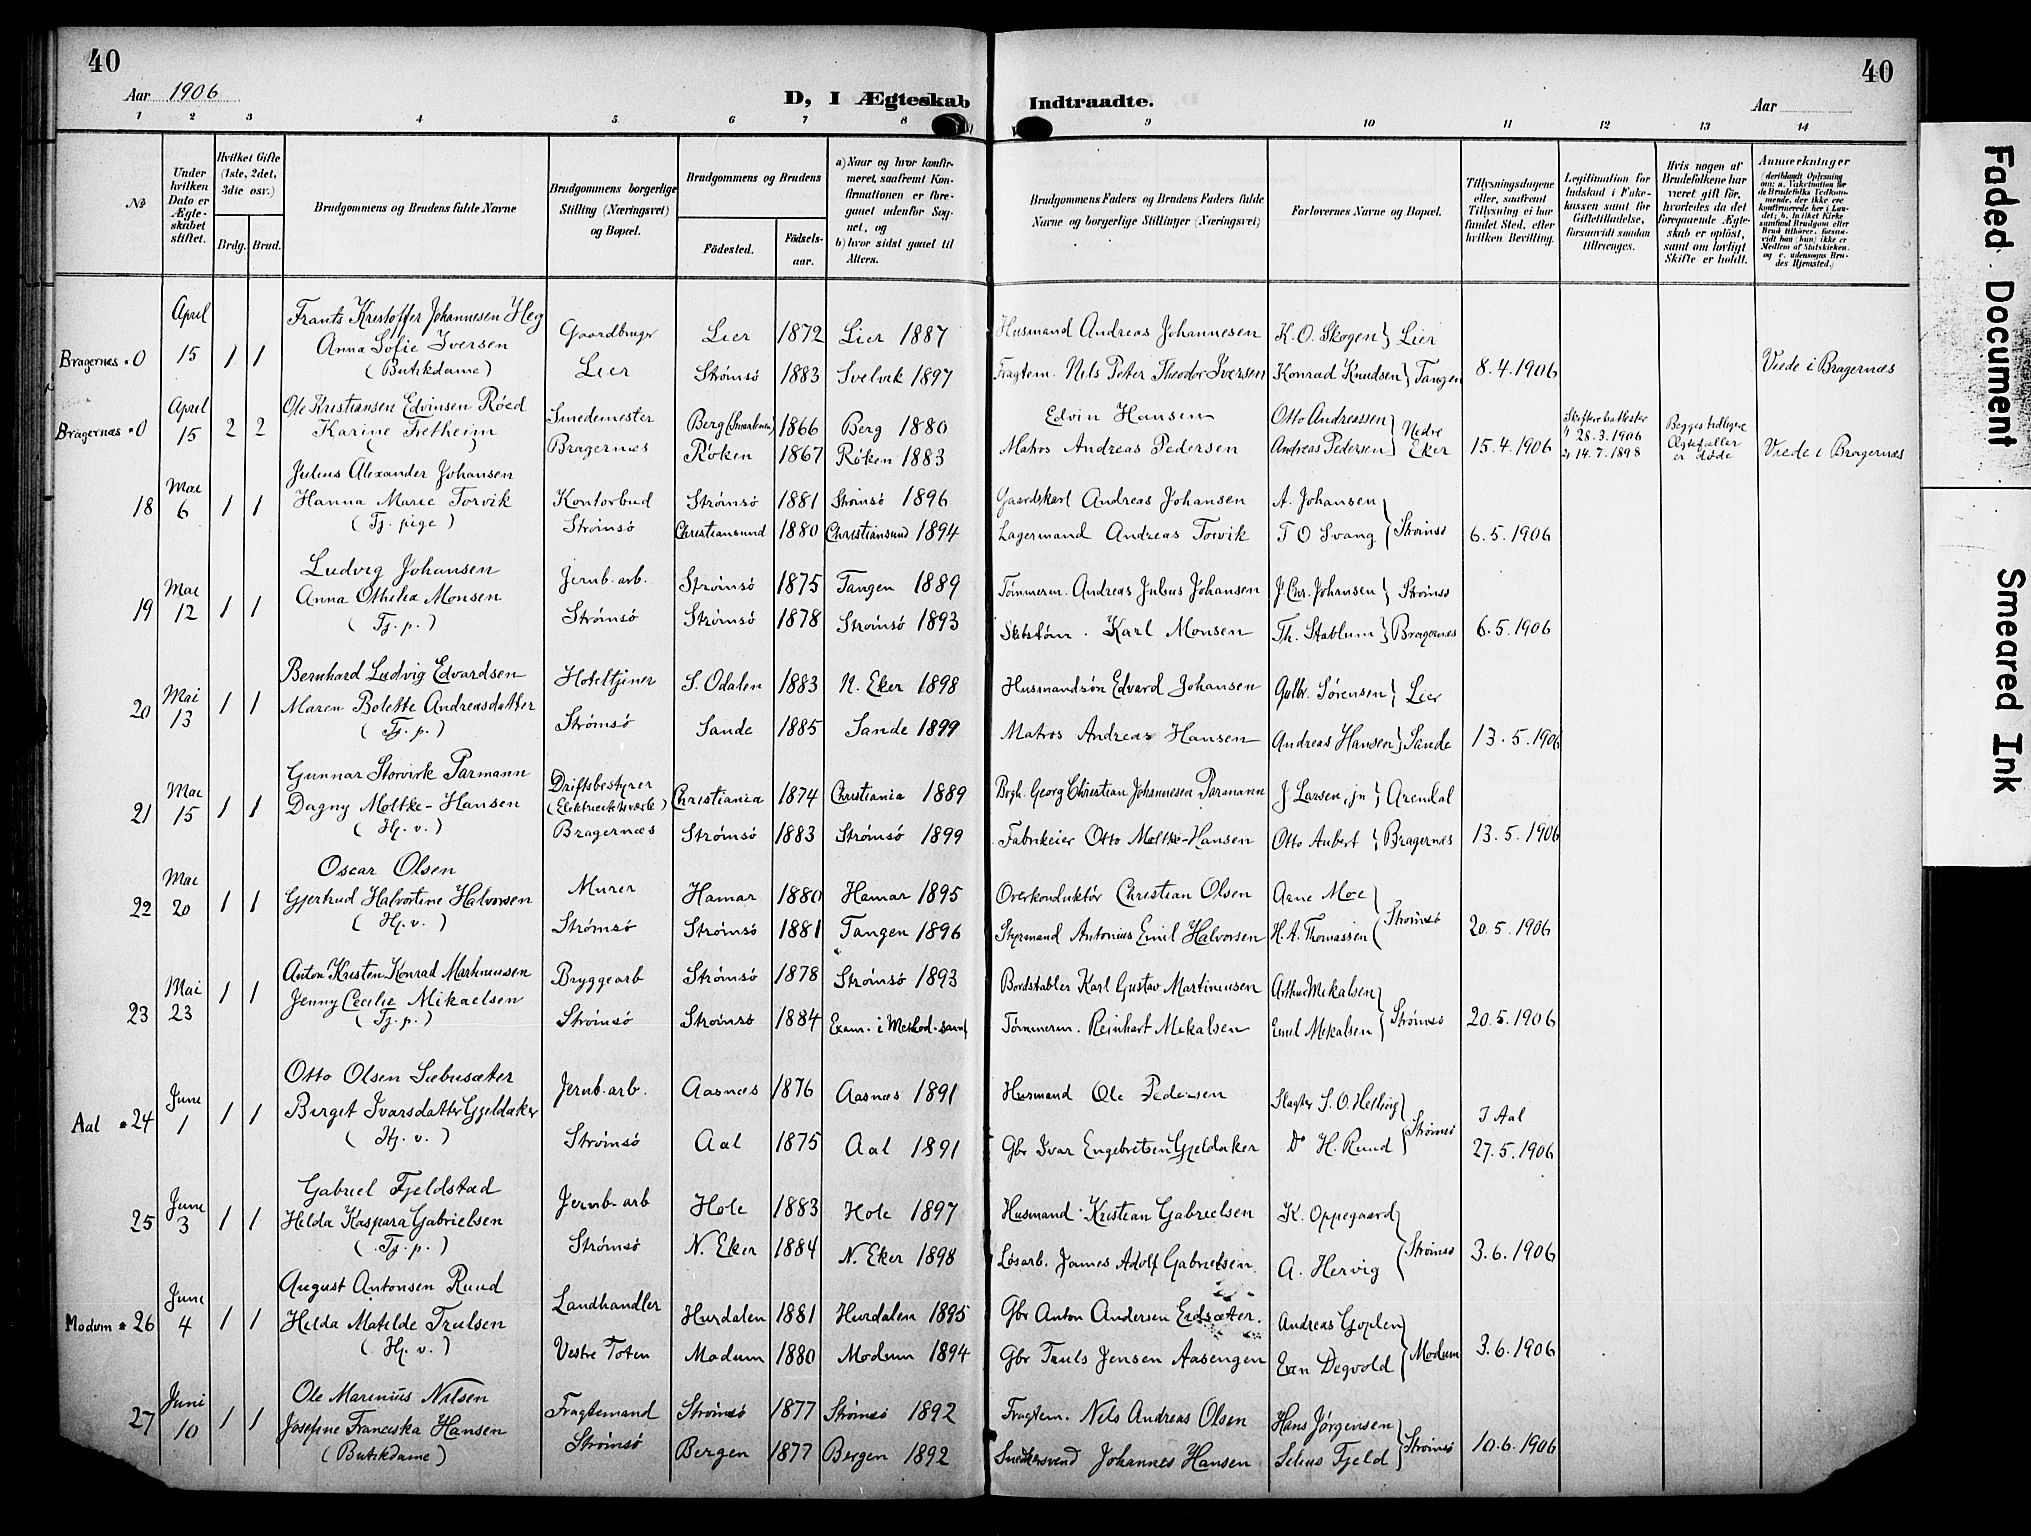 40
40
Aar 1906
D, I Ægteskab Indtraadte.
Aar
1 2 3 4 5 6 7 8 9 10 11 12 13 14
No
Under hvilken Dato er Ægteskabet stiftet.
Hvilket Gifte (1ste, 2det, 3die osv.)
Brdg. Brud.
Brudgommens og Brudens fulde Navne
Brudgommens borgerlige Stilling (Næringsvei) og Bopæl.
Brudgommens og Brudens
Födested. Födselsaar.
a) Naar og hvor konfirmeret, saafremt Konfirmationen er foregaaet udenfor Sognet, og
b) hvor sidst gaaet til Alters.
Brudgommens Faders og Brudens Faders fulde Navne og borgerlige Stillinger (Næringsvei)
Forlovernes Navne og Bopæl.
Tillysningsdagene eller, saafremt Tillysning ei har fundet Sted, efter hvilken Bevilling.
Legitimation for Indskud i Enkekassen samt for Giftetilladelse, forsaavidt saadan tiltrænges.
Hvis nogen af Brudefolkene har været gift för, hvorledes da det foregaaende Ægteskab er oplöst, samt om lovligt Skifte er holdt.
Anmærkninger (deriblandt Oplysning om: a. Vakcination for de Brudefolks Vedkommende, der ikke ere konfirmerede her i Landet; b. hvilket Kirkesamfund Brudgom eller Brud tilhører, forsaavidt han (hun) ikke er Medlem af Statskirken. og c. udensogns Brudes Hjemsted.)
Bragernæs • 0 April 15 1 1 Frants Kristoffer Johannesen Heg Gaardbruger Lier 1872 Lier 1887 Husmand Andreas Johannesen K. O. Skogen } Lier
Anna Sofie Iversen (Butikdame) Lier Strømsö 1883 Svelvik 1897 Fragtem. Nils Peter Theodor Iversen Konrad Knudsen } Tangen 8.4.1906 Viede i Bragernæs
Bragernæs • 0 April 15 2 2 Ole Kristiansen Edvinsen Röed Smedemester Berg 1866 Berg 1880 Edvin Hansen Otto Andreassen
Karine Tretheim Bragernæs Röken 1867 Röken 1883 Matros Andreas Pedersen Andreas Pedersen } Nedre Eker 15.4.1906 1) 28.3.1906 2) 14.7.1898 Begges tidligere Ægtefæller er døde Viede i Bragernæs
18 Mai 6 1 1 Julius Alexander Johansen Kontorbud Strømsö 1881 Strømsö 1896 Gaardskarl Andreas Johansen A. Johansen
Hanna Marie Torvik (Tj. pige) Strømsö Christiansund 1880 Christiansund 1894 Lagermand Andreas Torvik T O Svang } Strømsö 6.5.1906
19 Mai 12 1 1 Ludvig Johansen Jernb. arb. Strømsö 1875 Tangen 1889 Tømmerm. Andreas Julius Johansen J. Chr. Johansen } Strømsö
Anna Othilia Monsen (Tj. p.) Strømsö Strømsö 1878 Strømsö 1893 Skibstøm. Karl Monsen Th. Stablum } Bragernæs 6.5.1906
20 Mai 13 1 1 Bernhard Ludvig Edvardsen Hoteltjener S. Odalen 1883 N. Eker 1898 Husmandsön Edvard Johansen Gulbr. Sörensen } Lier
Maren Bolette Andreasdatter (Tj. p.) Strømsö Sande 1885 Sande 1899 Matros Andreas Hansen Andreas Hansen } Sande 13.5.1906
21 Mai 15 1 1 Gunnar Storvirk Parmann Driftsbestyrer (Elektricitetsværk) Christiania 1874 Christiania 1889 Bogh. Georg Christian Johannesen Parmann J. Larsen, jn } Arendal
Dagny Moltke-Hansen (Hj. v.) Bragernæs Strømsö 1883 Strømsö 1899 Fabrikeier Otto Moltke-Hansen Otto Aubert } Bragernæs 13.5.1906
22 Mai 20 1 1 Oscar Olsen Murer Hamar 1880 Hamar 1895 Overkonduktör Christian Olsen Arne Moe
Gjertrud Halvortine Halvorsen (Hj. v.) Strømsö Strømsö 1881 Tangen 1896 Styrmand Antonius Emil Halvorsen H. A. Thomassen } Strømsö 20.5.1906
23 Mai 23 1 1 Anton Kristen Konrad Martinusen Bryggearb Strømsö 1878 Strømsö 1893 Bordstabler Karl Gustav Martinusen Arthur Mikalsen
Jenny Cecilie Mikaelsen (Tj. p.) Strømsö Strømsö 1884 Exam. i Method. samf Tømmerm. Reinhart Mikalsen Emil Mikalsen } Strømsö 20.5.1906
Aal • 24 Juni 1 1 1 Otto Olsen Sæbusæter Jernb. arb. Aasnæs 1876 Aasnæs 1891 Husmand Ole Pedersen Slagter S. O. Helling
Birget Ivarsdatter Gjeldaker (Hj. v.) Strømsö Aal 1875 Aal 1891 Gbr Ivar Engebretsen Gjeldaker Do H. Ruud } Strømsö I Aal 27.5.1906
25 Juni 3 1 1 Gabriel Fjeldstad Jernb. arb Hole 1883 Hole 1897 Husmand Kristian Gabrielsen K. Oppegaard
Hilda Kaspara Gabrielsen (Tj. p.) Strømsö N. Eker 1884 N. Eker 1898 Løsarb. James Adolf Gabrielsen A. Hervig } Strømsö 3.6.1906
Modum • 26 Juni 4 1 1 August Antonsen Ruud Landhandler Hurdalen 1881 Hurdalen 1895 Gbr Anton Andersen Eidsæter. Andreas Goplen
Hilda Matilde Trulsen (Hj. v.) Vestre Toten Modum 1880 Modum 1894 Gbr Truls Jensen Aasengen Even Degvold } Modum 3.6.1906
27 Juni 10 1 1 Ole Marinius Nilsen Fragtemand Strømsö 1877 Strømsö 1892 Fragtem. Nils Andreas Olsen Hans Jørgensen
Josefine Franciska Hansen (Butikdame) Strømsö Bergen 1877 Bergen 1892 Snedkersvend Johannes Hansen Selius Fjeld } Strømsö 10.6.1906
Faded Document
Smeared Ink